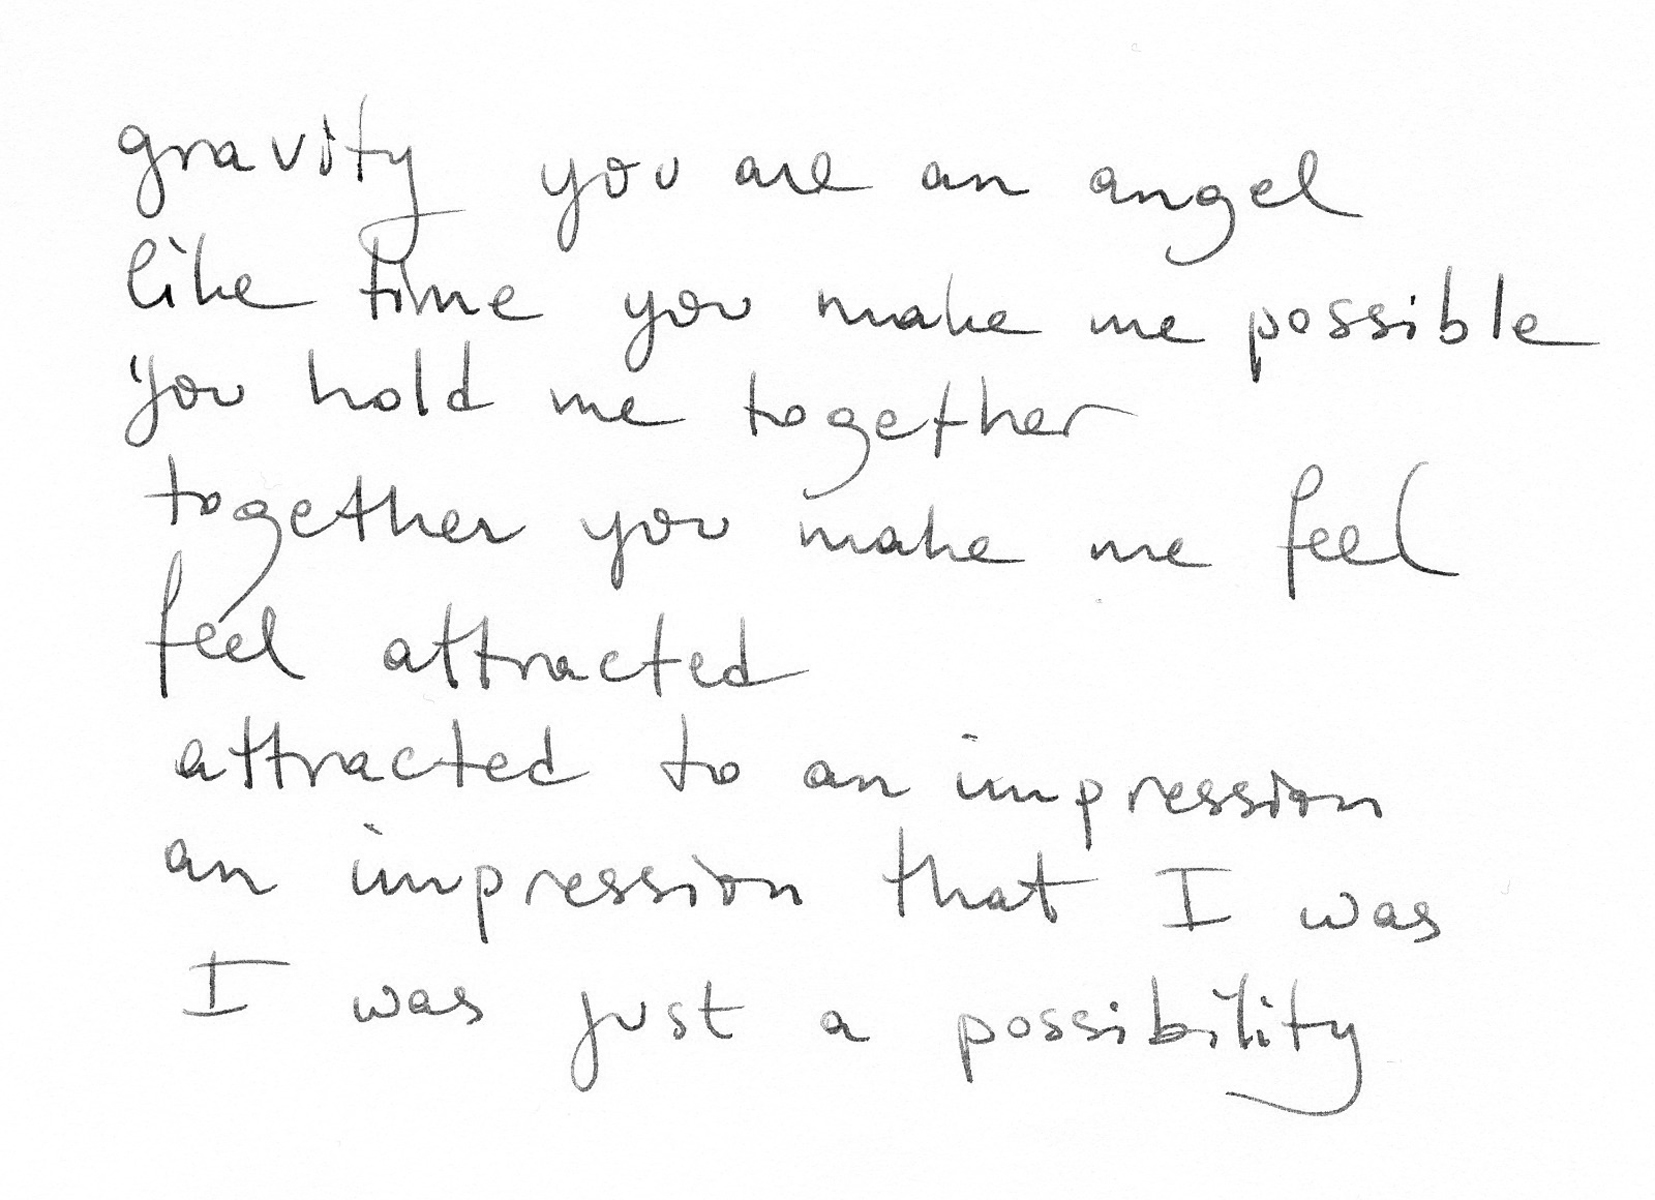 gravity you are an angel
like time you make me possible
you hold me together
together you make me feel
feel attracted
attracted to an impression
an impression that I was
I was just a possibility